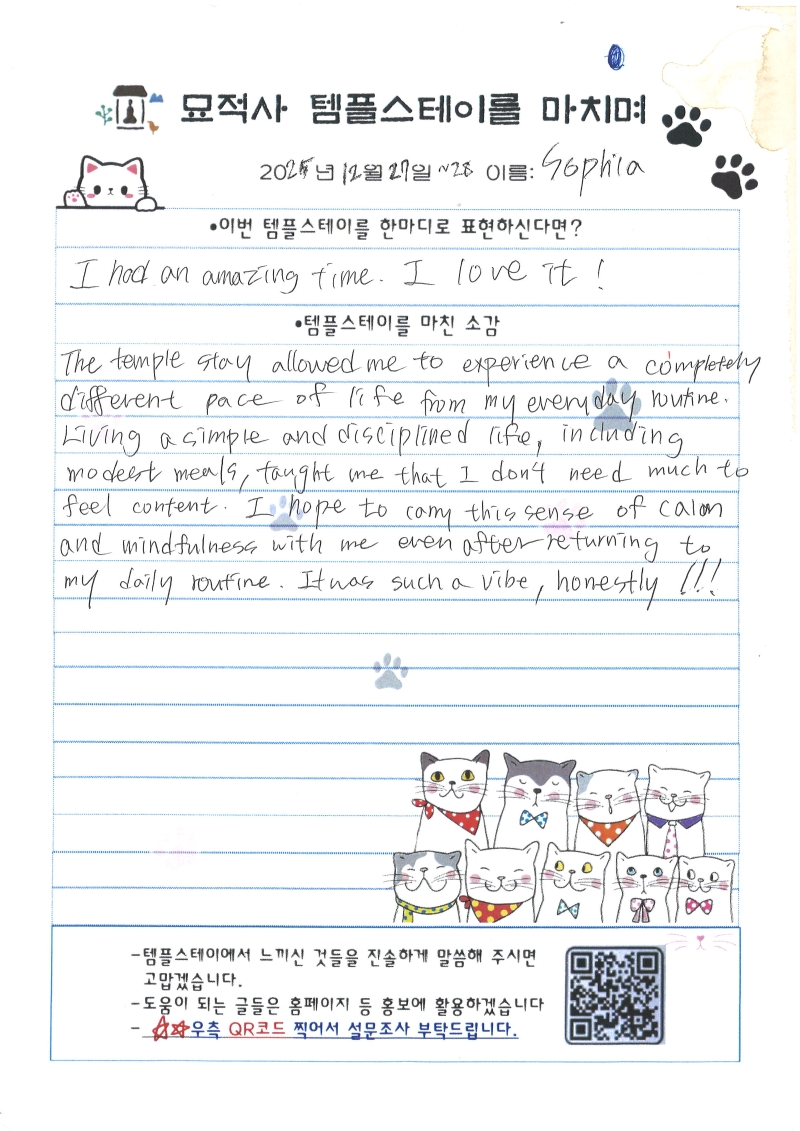 묘적사 템플스테이를 마치며
2025년 12월 27일 ~28 이름: Sophia
•이번 템플스테이를 한마디로 표현하신다면?
I had an amazing time. I love it !
•템플스테이를 마친 소감
The temple stay allowed me to experience a completely
different pace of life from my everyday routine.
Living a simple and disciplined life, including
modest meals, taught me that I don't need much to
feel content. I hope to carry this sense of calm
and mindfulness with me even after returning to
my daily routine. It was such a vibe, honestly !!!
-템플스테이에서 느끼신 것들을 진솔하게 말씀해 주시면
고맙겠습니다.
-도움이 되는 글들은 홈페이지 등 홍보에 활용하겠습니다
- ☆☆우측 QR코드 찍어서 설문조사 부탁드립니다.